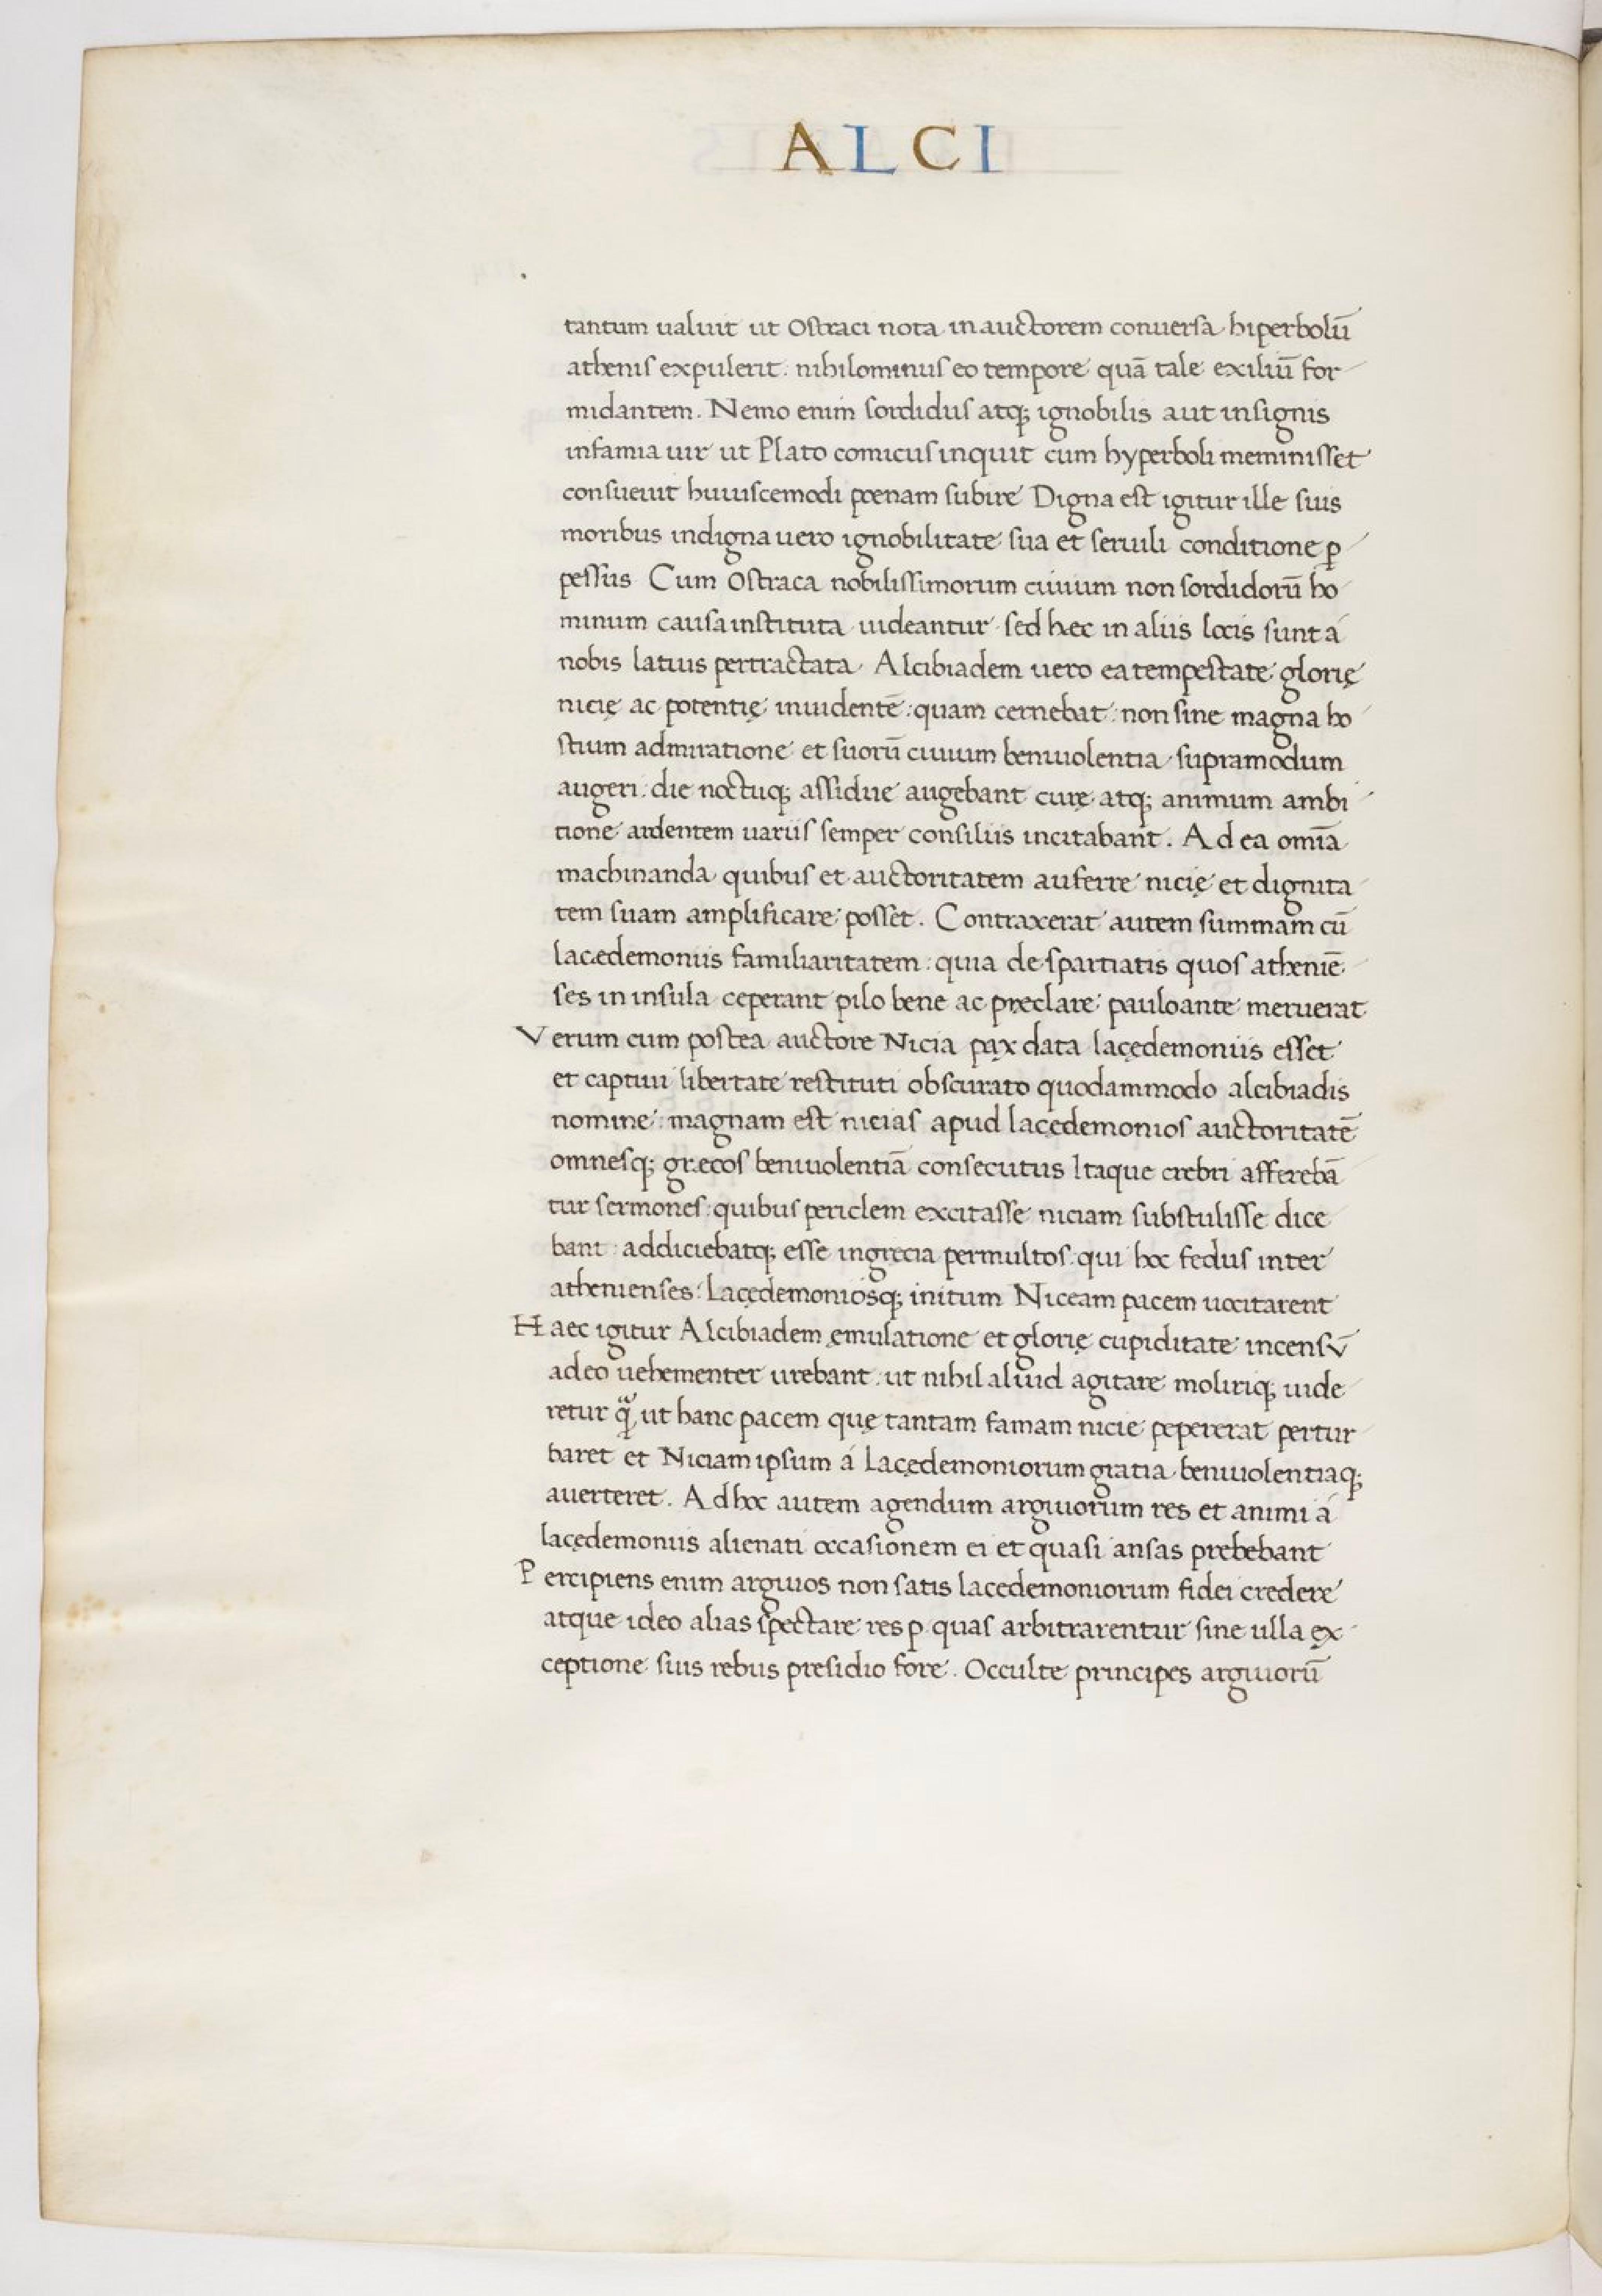 ALCI
tantum ualuit ut Ostraci nota in auctorem conuersa hiperbolū
athenis expulerit: nihilominus eo tempore quā tale exiliū for
midantem. Nemo enim sordidus atq; ignobilis aut insignis
infamia uir ut Plato comicus inquit cum hyperboli meminisset
consueuit huiuscemodi poenam subire Digna est igitur ille suis
moribus indigna uero ignobilitate sua et seruili conditione ꝑ
pessus Cum Ostraca nobilissimorum ciuium non sordidorū ho
minum causa instituta uideantur sed hęc in aliis locis sunt á
nobis latius pertractata. Alcibiadem uero ea tempestate glorię
nicię ac potentię inuidentē: quam cernebat: non sine magna ho
stium admiratione et suorū ciuium beniuolentia supramodum
augeri: die noctuq; assidue augebant curę atq; animum ambi
tione ardentem uariis semper consiliis incitabant. Ad ea omīa
machinanda quibus et auctoritatem auferre nicię et dignita
tem suam amplificare posset. Contraxerat autem summam cū
lacedemoniis familiaritatem: quia de spartiatis quos atheniē
ses in insula ceperant pilo bene ac pręclare pauloante meruerat
Verum cum postea auctore Nicia pax data lacędemoniis esset
et captiui libertate restituti obscurato quodammodo alcibiadis
nomine: magnam est nicias apud lacędemonios auctoritatē
omnesq; gręcos beniuolentiā consecutus Itaque crebri afferebā
tur sermones: quibus periclem excitasse niciam substulisse dice
bant: addiciebatq; esse in gręcia permultos: qui hoc fedus inter
athenienses: Lacędemoniosq; initum Niceam pacem uocitarent
Haec igitur Alcibiadem ęmulatione et glorię cupiditate incensū
adeo uehementer urebant: ut nihil aliud agitare moliriq; uide
retur qᷓ ut hanc pacem quę tantam famam nicie pepererat pertur
baret et Niciam ipsum á Lacędemoniorum gratia beniuolentiaq;
auerteret. Ad hoc autem agendum argiuorum res et animi á
lacędemoniis alienati occasionem ei et quasi ansas prebebant
Percipiens enim argiuos non satis lacedemoniorum fidei credere
atque ideo alias spectare res ꝑ quas arbitrarentur sine ulla ex
ceptione suis rebus presidio fore. Occulte principes argiuorū